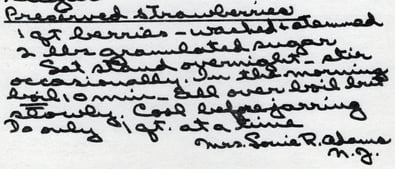 Preserved Strawberries
1 qt berries - washed & stemmed
2 lbs granulated sugar
Let stand overnight - stir
occasionally. In the morning
boil 10 min - all over boil but
slowly. Cool before jarring
Do only 1 qt. at a time
Mrs. Louie R. Adams
N.J.